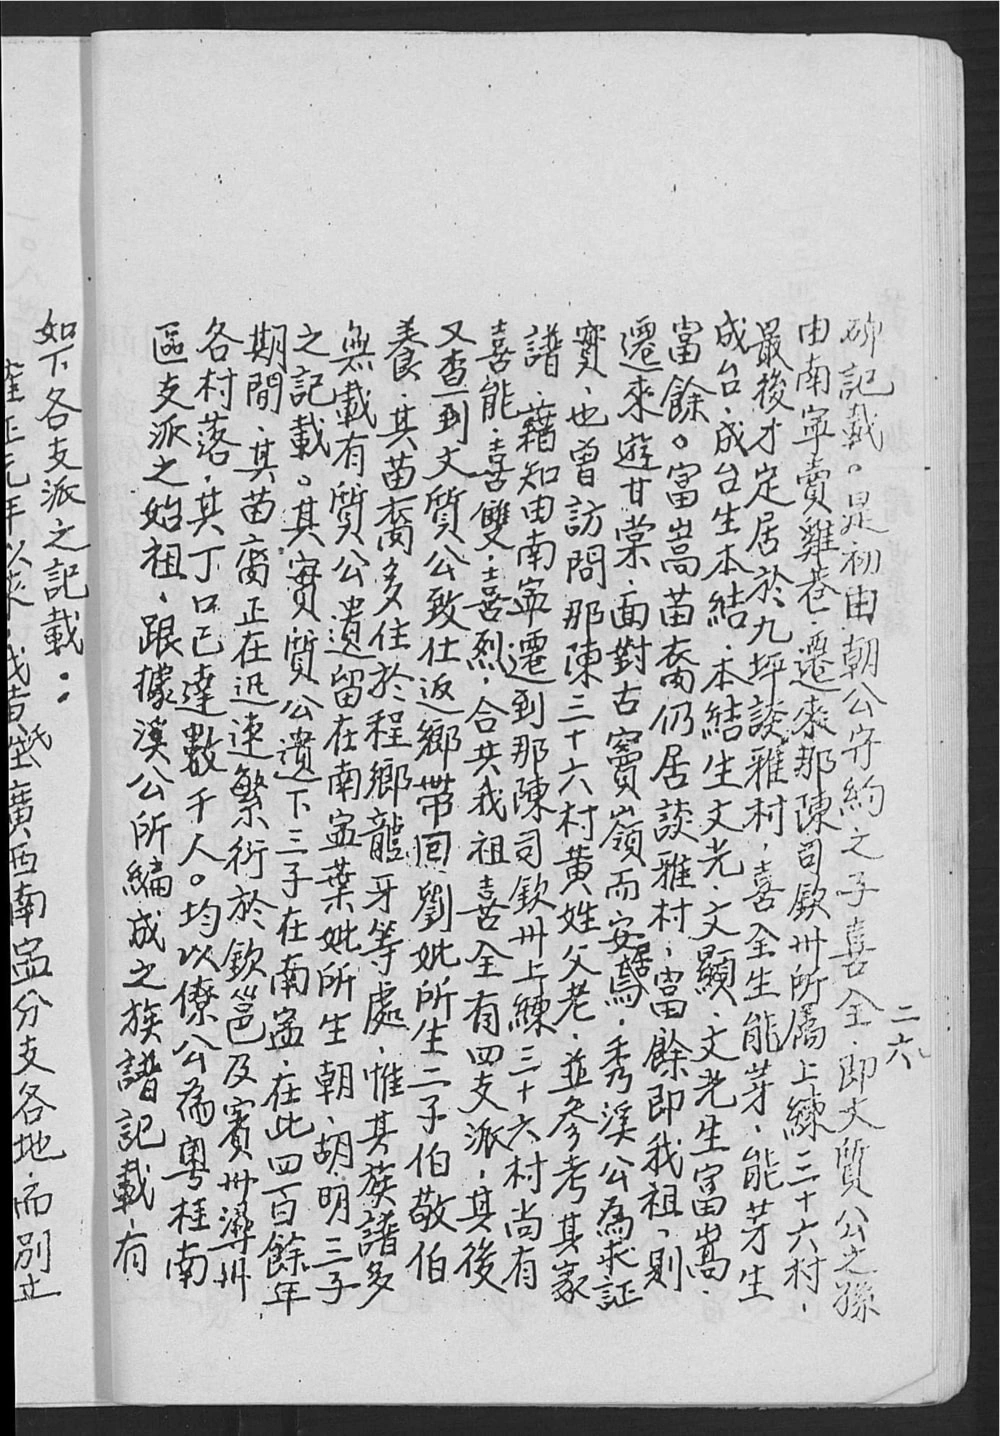 二六
碑記載。是初由朝公字約之子喜全、即文質公之孫
由南寧賣雞巷、遷來那陳司欽卅所屬上練三十六村、
最後才定居於九坪談雅村、喜全生能芽、能芽生
成台、成台生本結、本結生文光、文顯、文光生富嵩、
富餘。富嵩苗裔仍居談雅村、富餘即我祖、則
遷來遊甘棠、面對古竇嶺而安居焉、秀溪公為求証
實、也曾訪問那陳三十六村黃姓父老、並參考其家
譜、藉知由南寧遷到那陳司欽卅上練三十六村尚有
喜能、喜雙、喜烈、合共我祖喜全有四支派、其後
又查到文質公致仕返鄉帶回劉妣所生二子伯敬伯
養、其苗裔多住於程鄉龍牙等處、惟其族譜多
無載有質公遺留在南寧葉妣所生朝、胡、明三子
之記載。其實質公遺下三子在南寧、在此四百餘年
期間、其苗裔正在迅速繁衍於欽邕及賓卅潯卅
各村落、其丁口已達數千人。均以僚公為粵桂南
區支派之始祖、跟據溪公所編成之族譜記載、有
如下各支派之記載：
廣西南寧分支各地、而別立